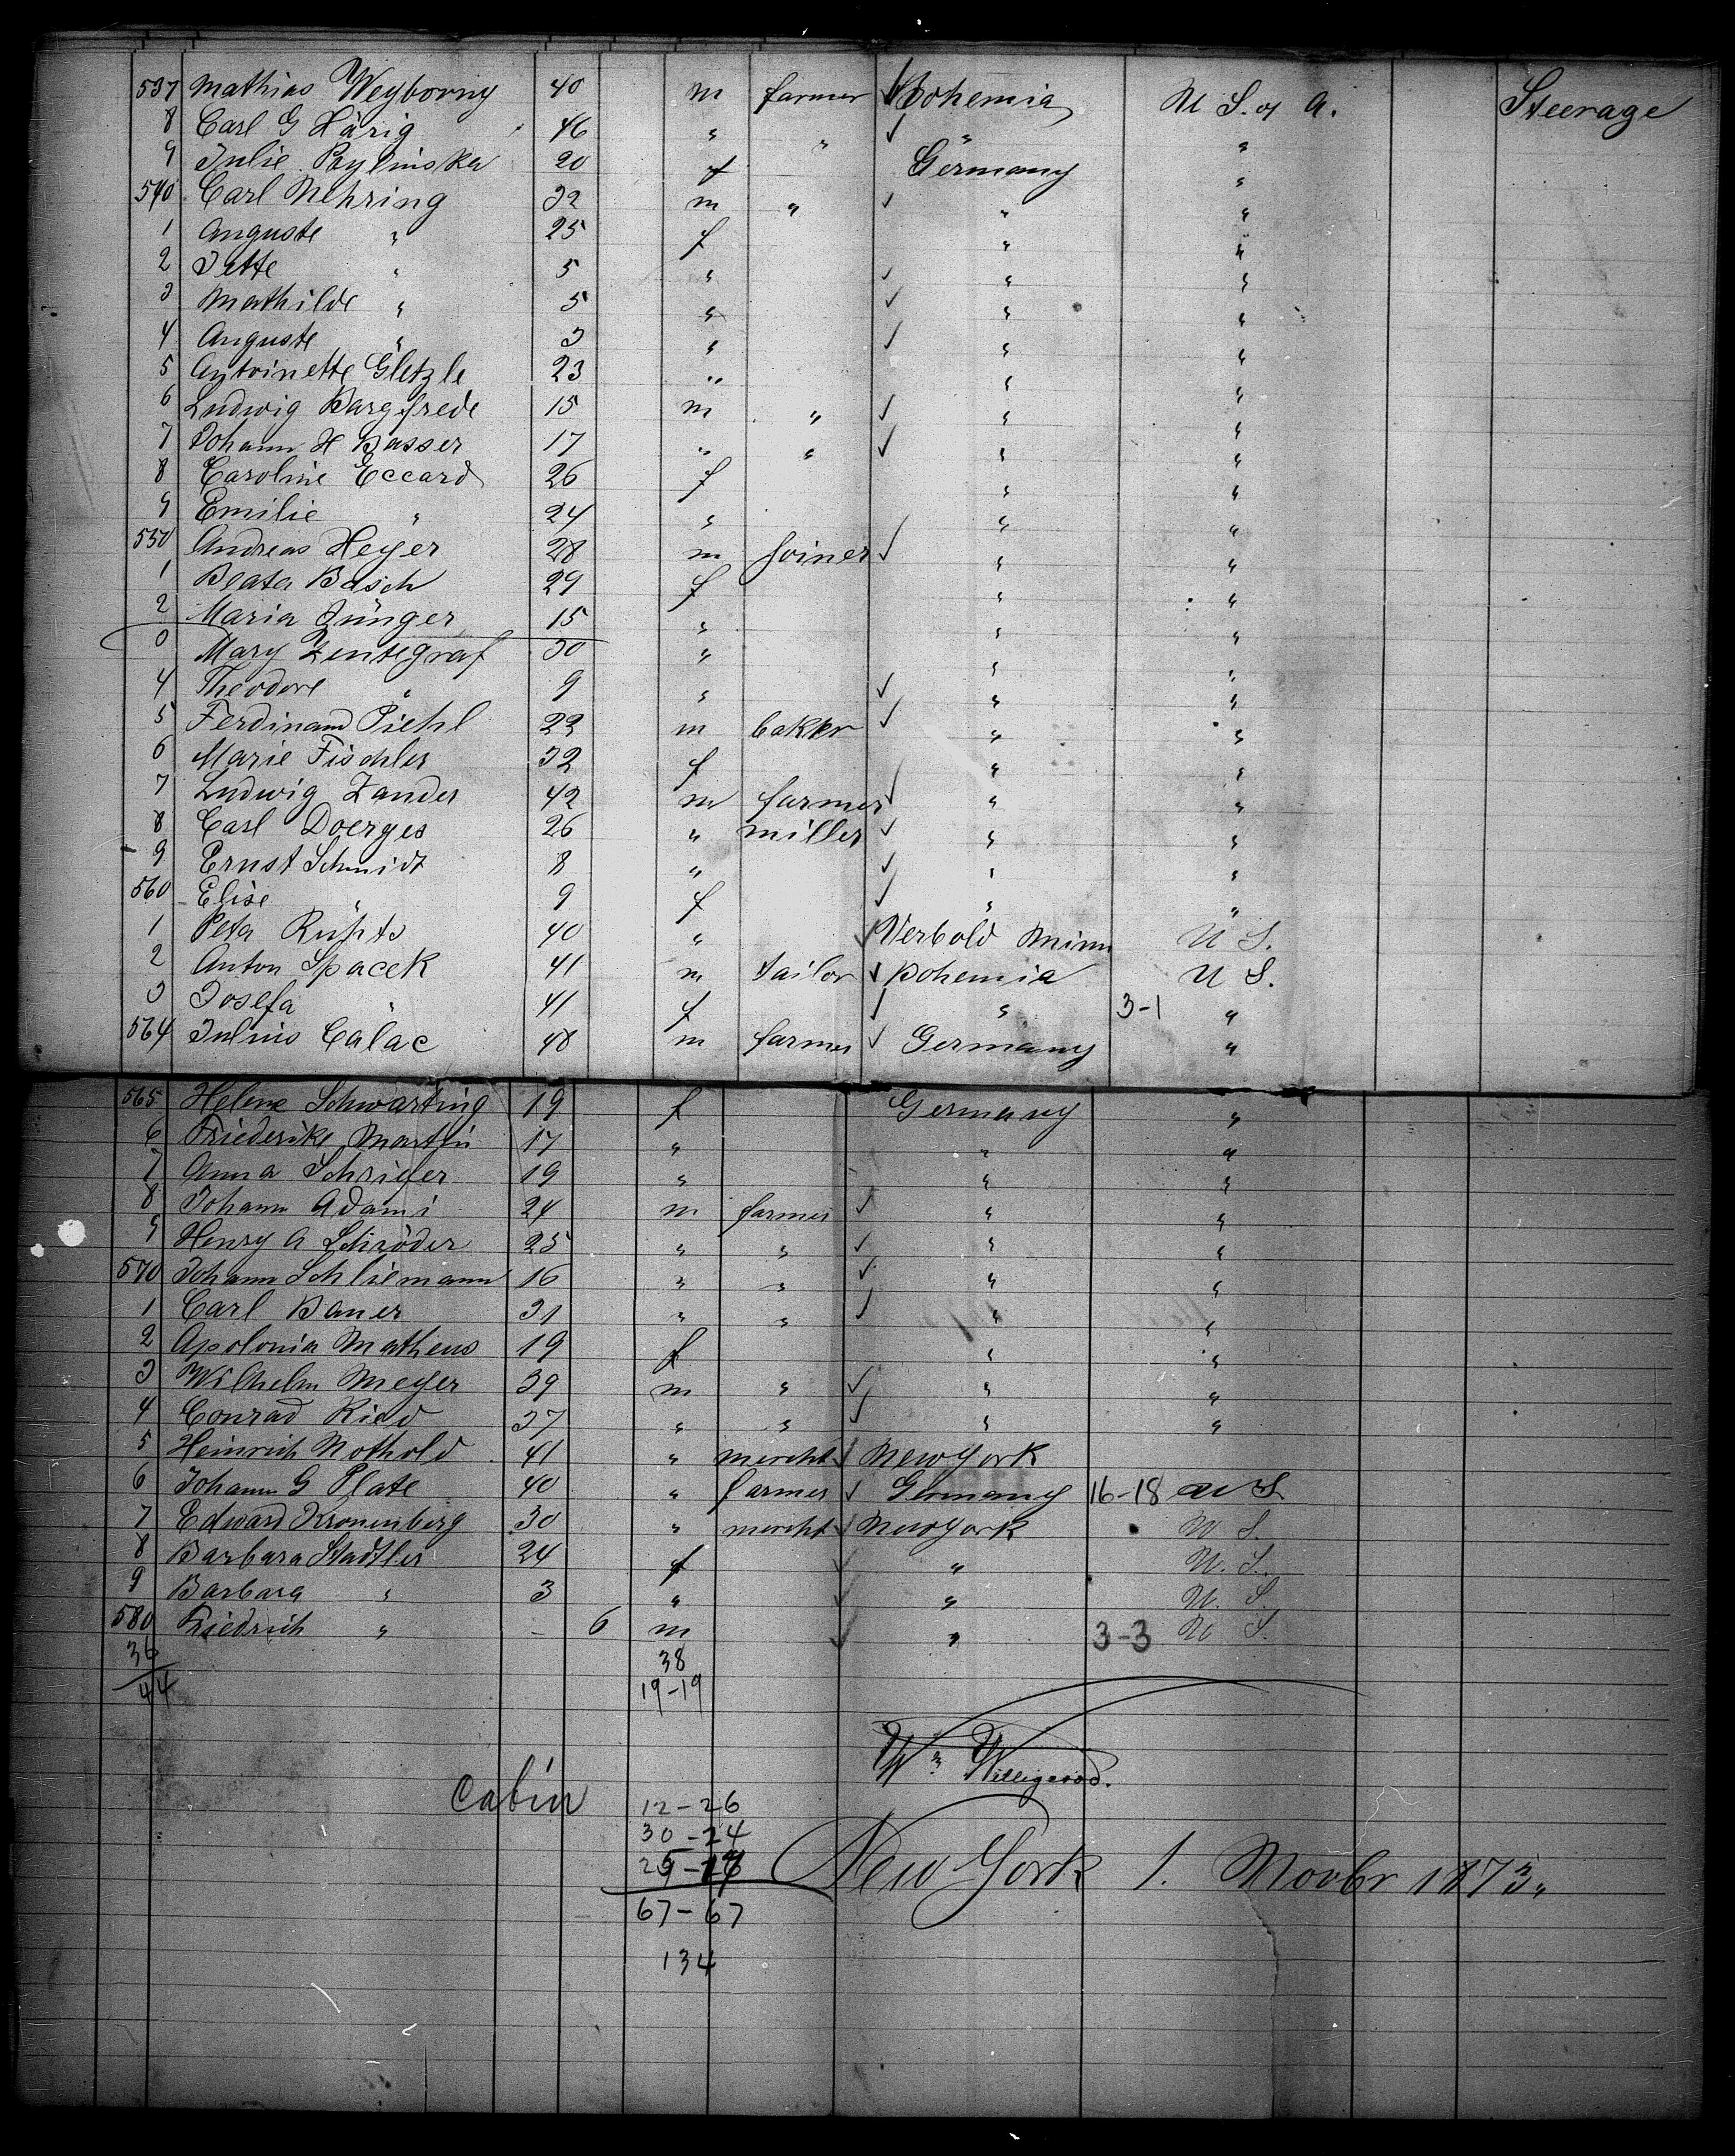 537 Mathias Weyborny 40 m farmer Bohemia U S. of A. Steerage
8 Carl G Härig 46 " " ✓ " "
9 Julie Poylinska 20 f Germany "
540 Carl Nehring 32 m " ✓ " "
1 Auguste " 25 f " "
2 Jette " 5 " ✓ " "
3 Mathilde " 5 " ✓ " "
4 Auguste " 3 " ✓ " "
5 Antoinette Gletzle 23 " " "
6 Ludwig Bargfrede 15 m " ✓ " "
7 Johann H Basser 17 " " ✓ " "
8 Caroline Eccard 26 f " "
9 Emilie " 24 " " "
550 Andreas Heyer 28 m joiner ✓ " "
1 Beata Basch 29 f " "
2 Maria Jünger 15 " " "
3 Mary Zentegraf 30 " " "
4 Theodore " 9 " ✓ " "
5 Ferdinand Piehl 23 m bakker ✓ " "
6 Marie Fischler 32 f " "
7 Ludwig Zander 42 m farmer ✓ " "
8 Carl Doerges 26 " miller ✓ " "
9 Ernst Schmidt 8 " ✓ " "
560 Elise " 9 f ✓ " "
1 Peta 40 " ✓ Minn U S.
2 Anton Spacek 41 m tailor ✓ Bohemia U S.
3 Josefa " 41 f ✓ " 3-1 "
564 Julius Calac 48 m farmer ✓ Germany "
565 Helene Schwarting 19 f Germany "
6 Friederike Martin 17 " " "
7 Anna Schriefer 19 " " "
8 Johann Adami 24 m farmer ✓ " "
9 Henry A Schröder 25 " " ✓ " "
570 Johann Schliemann 16 " " ✓ " "
1 Carl Bauer 31 " " ✓ " "
2 Apolonia Matheus 19 f " "
3 Wilhelm Meyer 39 m " ✓ " "
4 Conrad Ried 37 " " ✓ " "
5 Heinrich Nothold 41 " mercht ✓ New York
6 Johann G Plate 40 " farmer ✓ Germany 16-18 U S
7 Edward Kronenberg 30 " mercht ✓ New York U S.
8 Barbara Stadtler 24 f ✓ " U. S.
9 Barbara " 3 " ✓ " U. S.
580 Friedrich " - 6 m ✓ " 3-3 U S.
36 38
44 19-19
Wm Willigerod.
Cabin 12-26
30-24
25-17
New York 1. Novbr 1873.
67-67
134